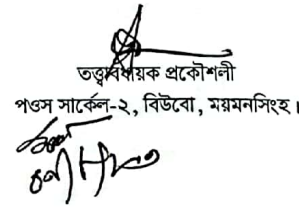 তত্ত্বাবধায়ক প্রকৌশলী
পওস সার্কেল-২, বিউবো, ময়মনসিংহ।